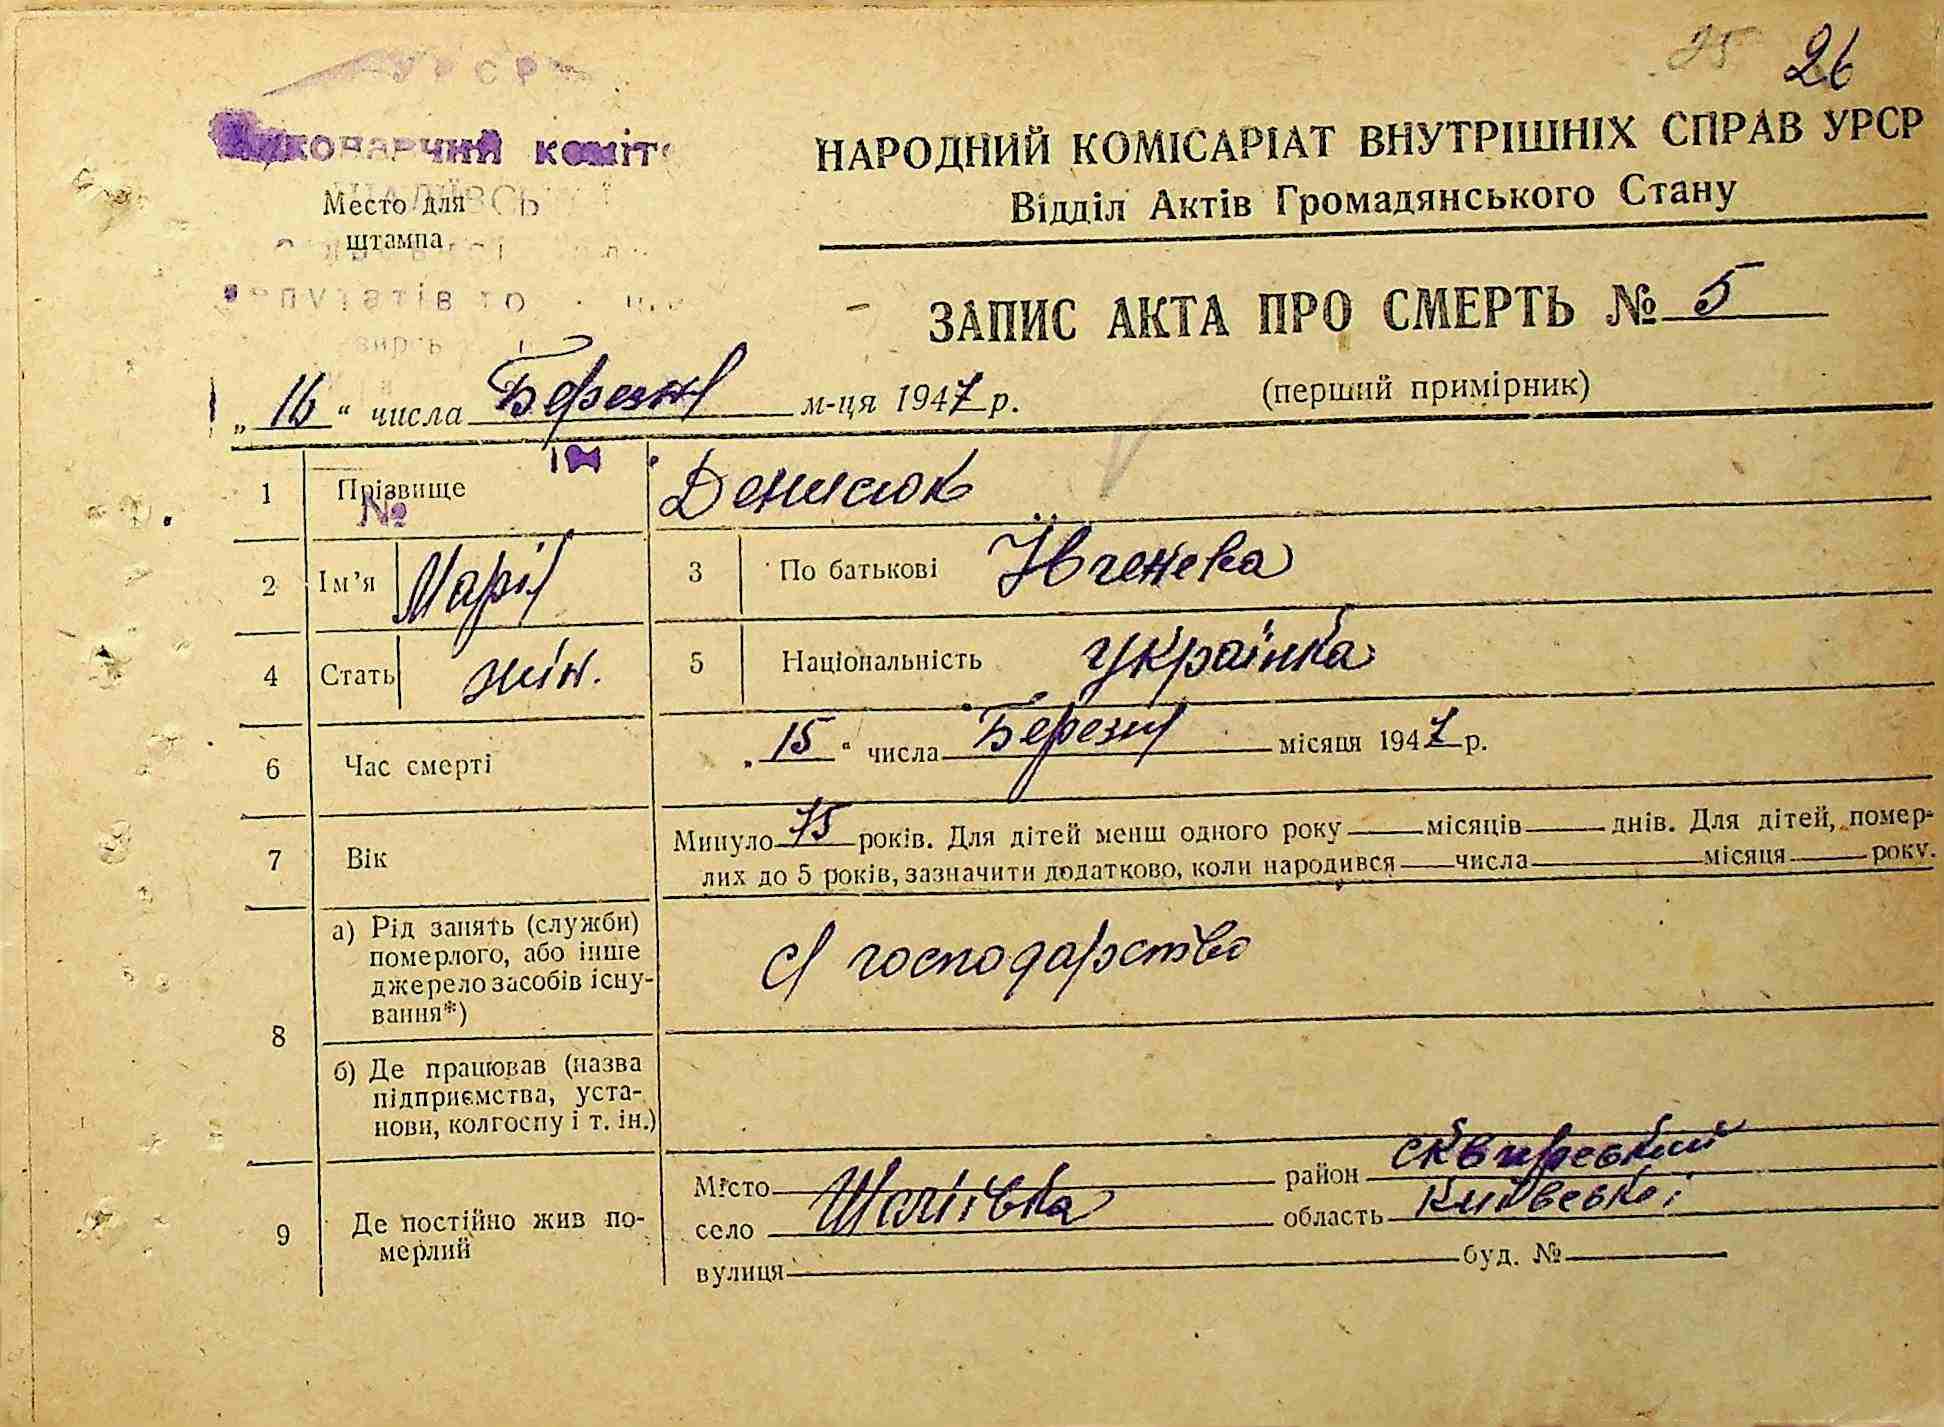 25 26
УРСР
Виконавчий коміт
Место для
штампа
НАРОДНИЙ КОМІСАРІАТ ВНУТРІШНІХ СПРАВ УРСР
Відділ Актів Громадянського Стану
ЗАПИС АКТА ПРО СМЕРТЬ № 5
„16“ числа Березня м-ця 1947 р. (перший примірник)
1 Прізвище Денисюк
№
2 Ім’я Марія 3 По батькові
4 Стать жін. 5 Національність українка
6 Час смерті „15“ числа Березня місяця 1947 р.
7 Вік Минуло 75 років. Для дітей менш одного року місяців днів. Для дітей, помер-
лих до 5 років, зазначити додатково, коли народився числа місяця року.
8 а) Рід занять (служби)
померлого, або інше
джерело засобів існу-
вання*)
С/ господарство
б) Де працював (назва
підприємства, уста-
нови, колгоспу і т. ін.)
9 Де постійно жив по-
мерлий
Місто район Сквирський
село Шаліївка область Київської
вулиця буд. №